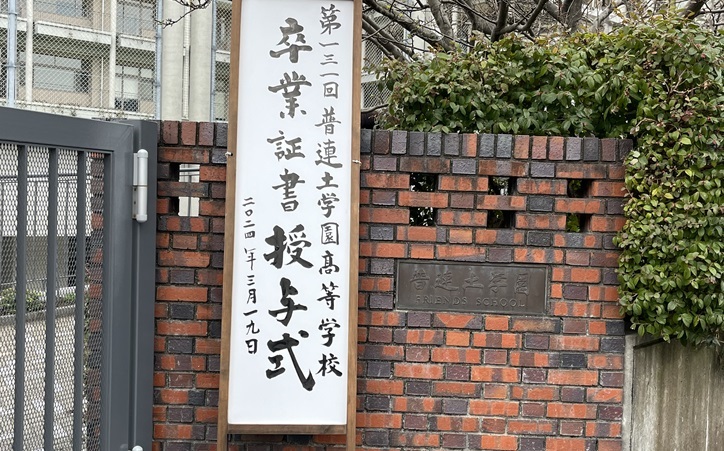 第一三一回普連土学園髙等学校
卒業証書授与式
二〇二四年三月一九日
普連土学園
FRIENDS SCHOOL